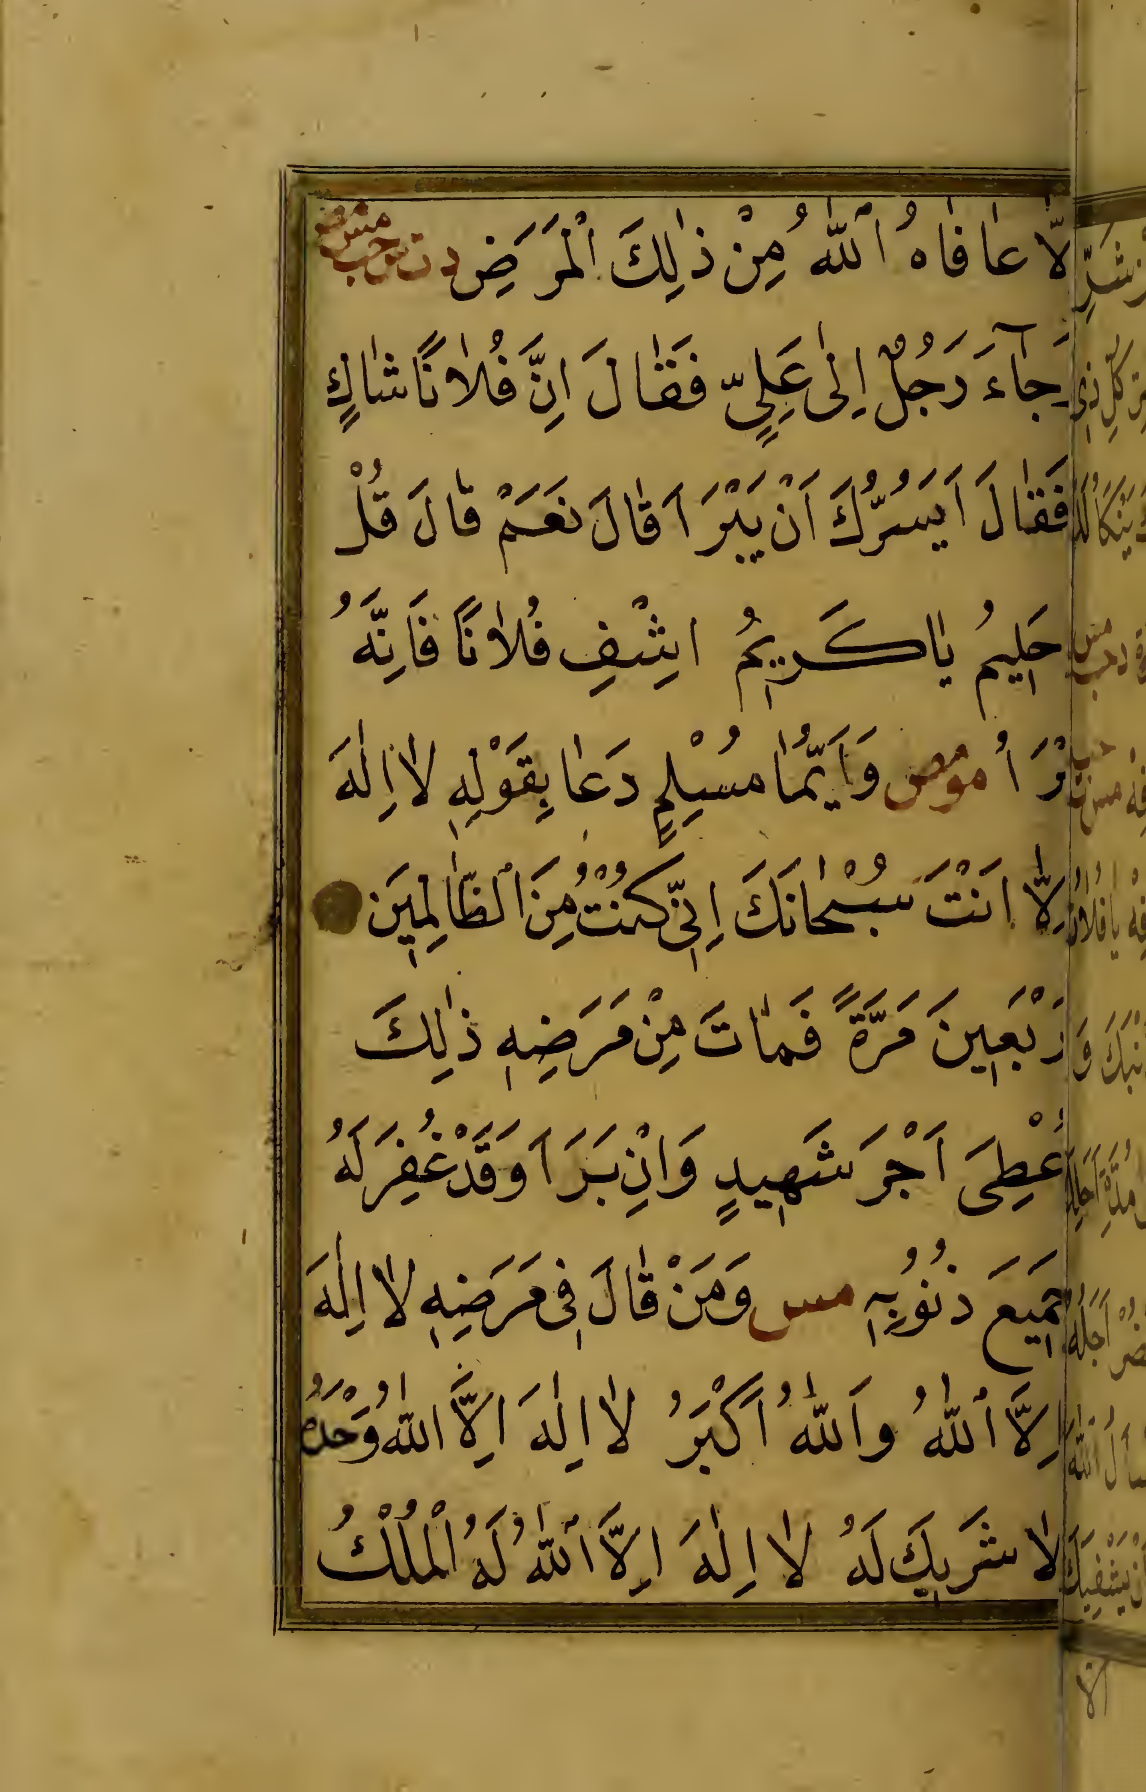 لَّا عَافَاهُ ٱللّٰهُ مِنْ ذٰلِكَ الْمَرَضِ د ت س حب مس مص
جَآءَ رَجُلٌ اِلٰى عَلِيٍّ فَقَالَ اِنَّ فُلَانًا شَاكٍ
فَقَالَ اَيَسُرُّكَ اَنْ يَبْرَاَ قَالَ نَعَمْ قَالَ قُلْ
حَلِيمُ يَا كَرِيمُ اشْفِ فُلَانًا فَاِنَّهُ
بْرَاُ مومص وَاَيُّمَا مُسْلِمٍ دَعَا بِقَوْلِهِ لَا اِلٰهَ
اِلَّا اَنْتَ سُبْحَانَكَ اِنِّي كُنْتُ مِنَ الظَّالِمِينَ
رْبَعِينَ مَرَّةً فَمَاتَ مِنْ مَرَضِهِ ذٰلِكَ
عْطِىَ اَجْرَ شَهِيدٍ وَاِنْ بَرَاَ وَقَدْ غُفِرَ لَهُ
جَمِيعَ ذُنُوبِهِ مس وَمَنْ قَالَ فِي مَرَضِهِ لَا اِلٰهَ
اِلَّا ٱللّٰهُ وَاللّٰهُ اَكْبَرُ لَا اِلٰهَ اِلَّا اللّٰهُ وَحْدَهُ
لَا شَرِيكَ لَهُ لَا اِلٰهَ اِلَّا ٱللّٰهُ لَهُ الْمُلْكُ